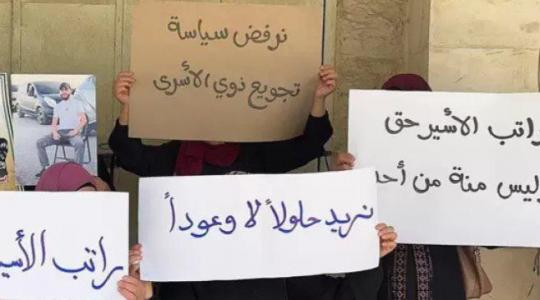 نرفض سياسة
تجويع ذوي الأسرى
راتب الأسير حق
وليس منة من أحد
نريد حلولاً لا وعوداً
راتب الأسير